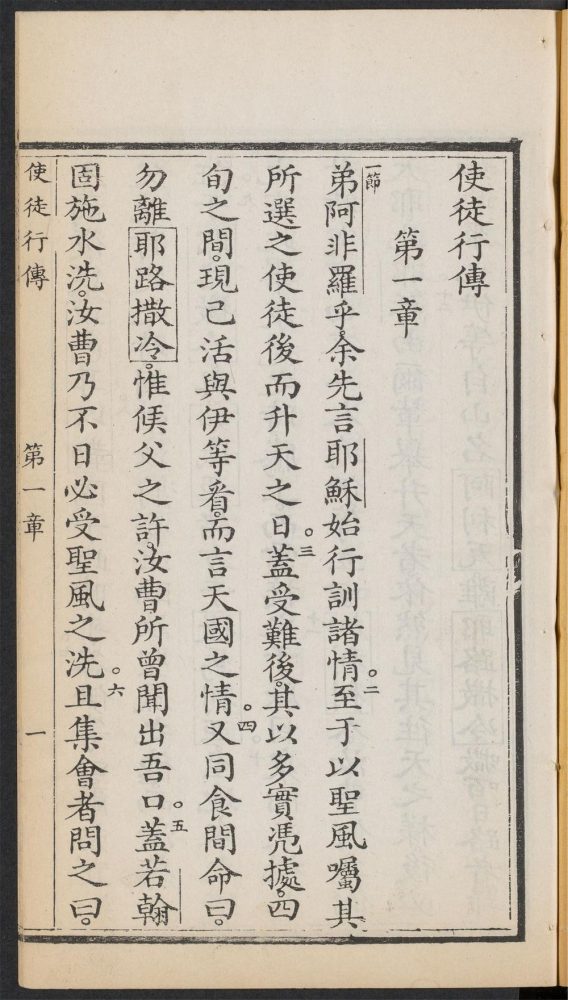 使徒行傳
第一章
一節弟阿非羅乎。余先言耶穌始行訓諸情。二至于以聖風囑其
所選之使徒後而升天之日。三蓋受難後。其以多實憑據。四
旬之間。現己活與伊等看。而言天國之情。四又同食間命曰。
勿離耶路撒冷。惟候父之許。汝曹所曾聞出吾口。五蓋若翰
固施水洗。汝曹乃不日必受聖風之洗。六且集會者問之曰。
使徒行傳 第一章 一